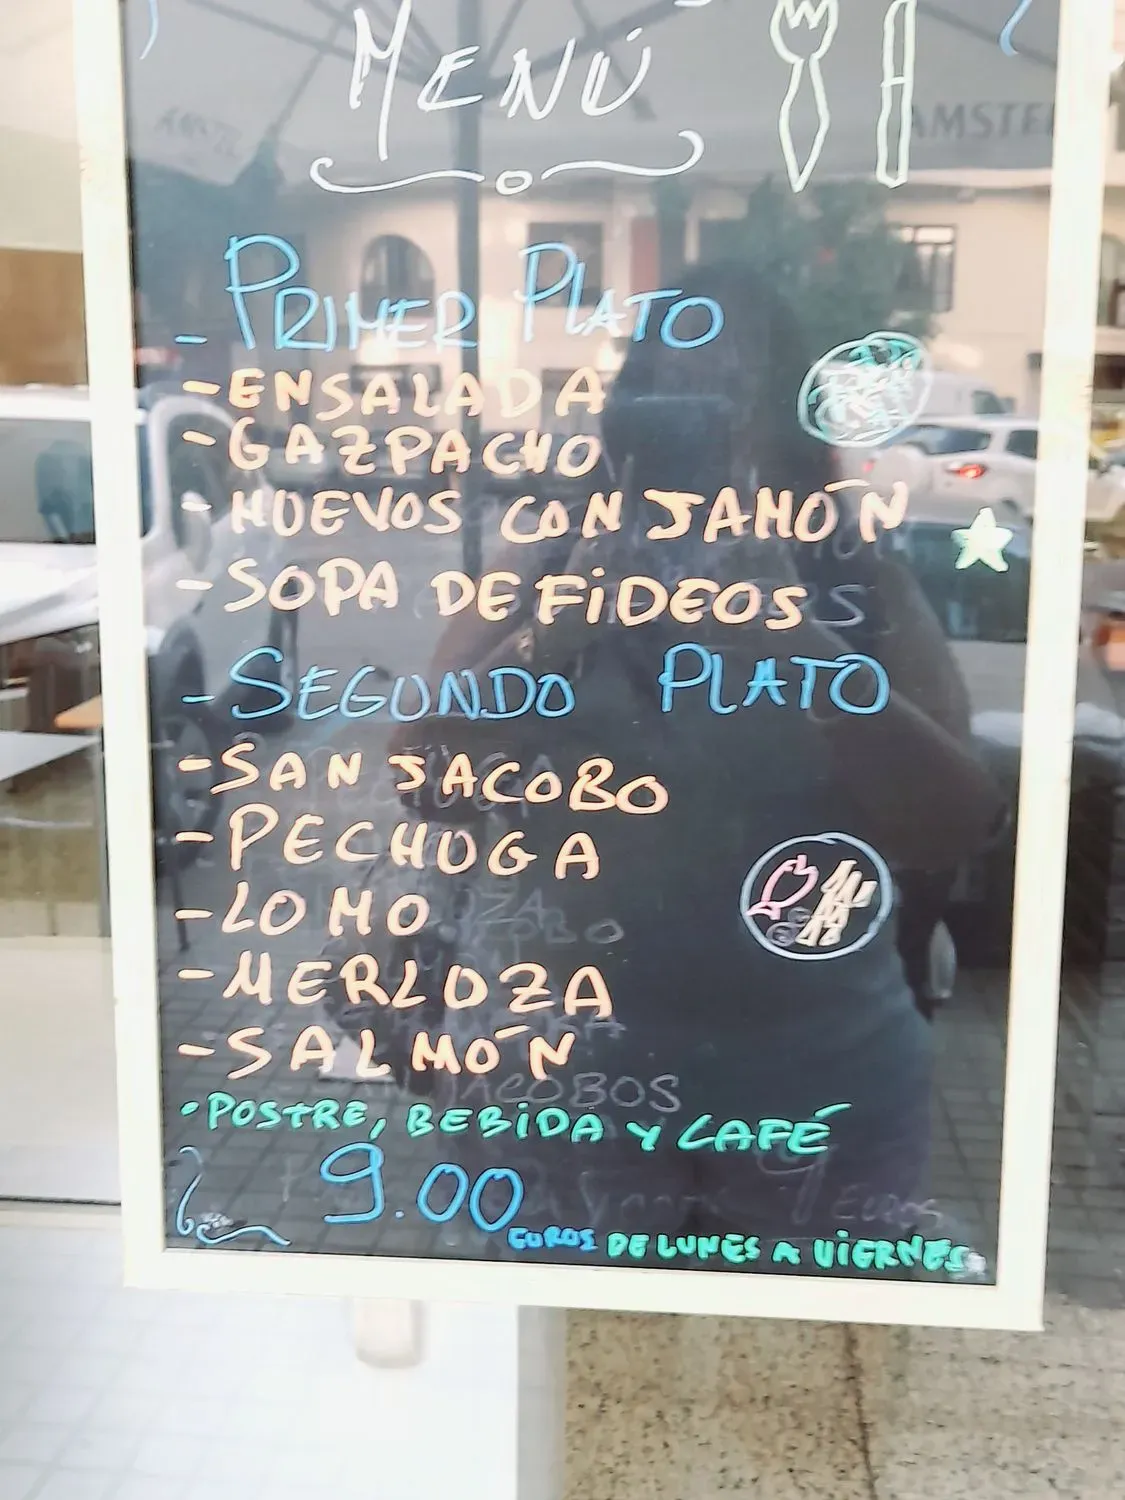 MENÚ
AMSTEL
- PRIMER PLATO
- ENSALADA
- GAZPACHO
- HUEVOS CON JAMÓN
- SOPA DE FIDEOS
- SEGUNDO PLATO
- SAN JACOBO
- PECHUGA
- LOMO
- MERLUZA
- SALMÓN
JACOBOS
• POSTRE, BEBIDA Y CAFÉ
9.00 EUROS DE LUNES A VIERNES